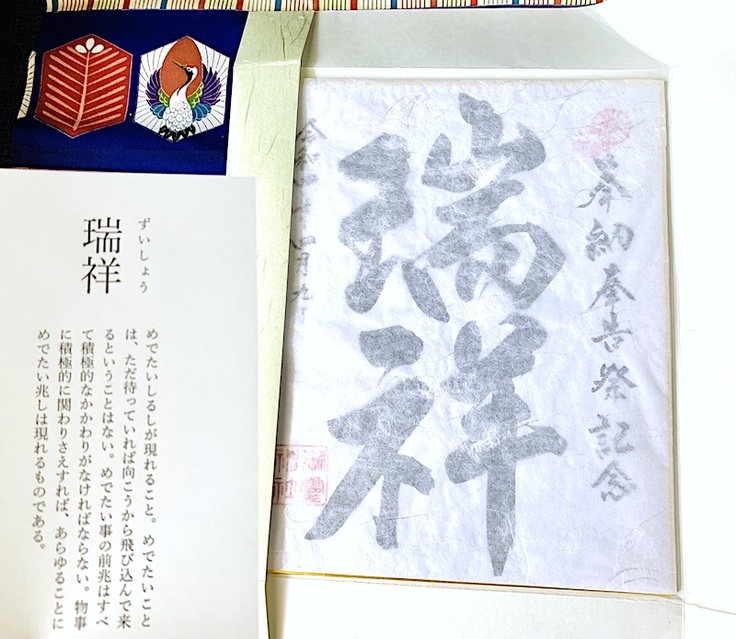 ずいしょう
瑞祥
めでたいしるしが現れること。めでたいこと
は、ただ待っていれば向こうから飛び込んで来
るということはない。めでたい事の前兆はすべ
て積極的なかかわりがなければならない。物事
に積極的に関わりさえすれば、あらゆることに
めでたい兆しは現れるものである。
奉納奉告祭記念
瑞祥
令和四年四月九日